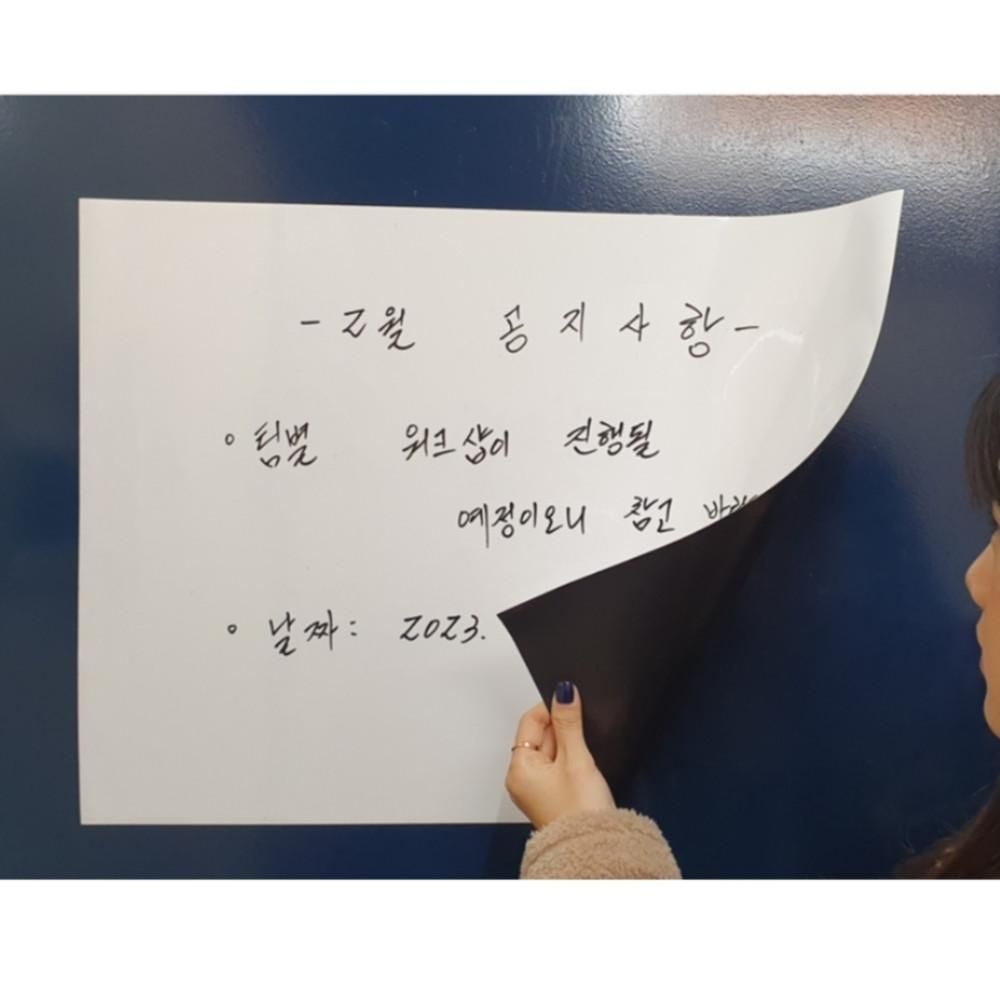 - 2월 공지사항 -
◦ 팀별 워크샵이 진행될
예정이오니 참고
◦ 날짜: 2023.